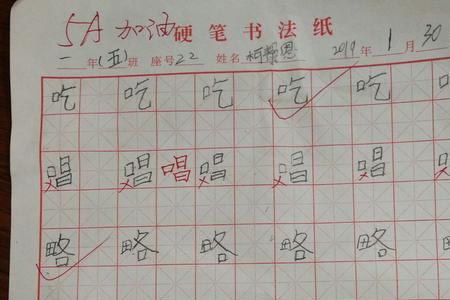 5A 加油 硬笔书法纸
一 年(五)班 座号22 姓名 柯 恩 2019年 1 月 30
吃 吃 吃 吃 吃
唱 唱 唱 唱 唱 唱
略 略 略 略 略